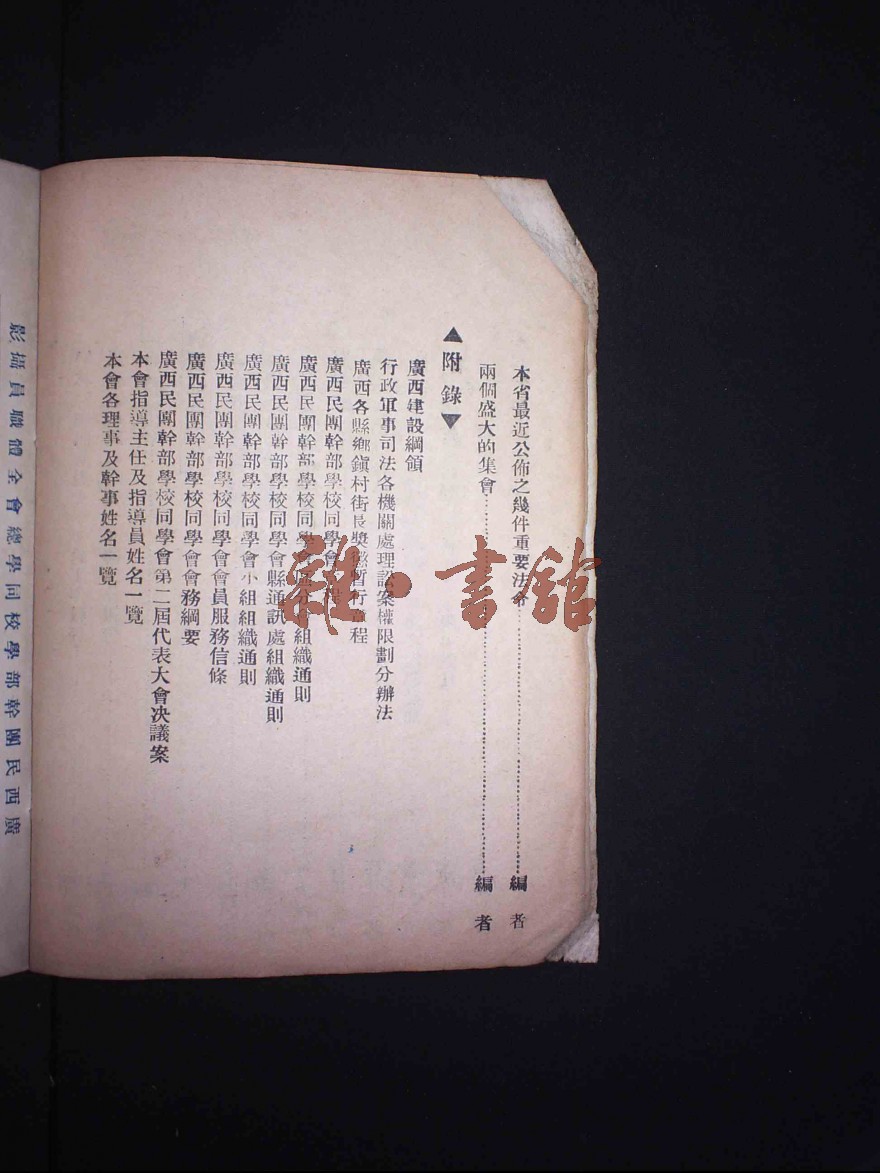 本省最近公佈之幾件重要法令……編者
兩個盛大的集會……編者
▲附錄▼
廣西建設綱領
行政軍事司法各機關處理訟案權限劃分辦法
廣西各縣鄉鎭村街長獎懲暫行章程
廣西民團幹部學校同學會
廣西民團幹部學校同學會 分 組織通則
廣西民團幹部學校同學會縣通訊處組織通則
廣西民團幹部學校同學會小組組織通則
廣西民團幹部學校同學會會員服務信條
廣西民團幹部學校同學會會務綱要
廣西民團幹部學校同學會第二屆代表大會決議案
本會指導主任及指導員姓名一覽
本會各理事及幹事姓名一覽
廣西民團幹部學校同學總會全體職員攝影
雜·書館